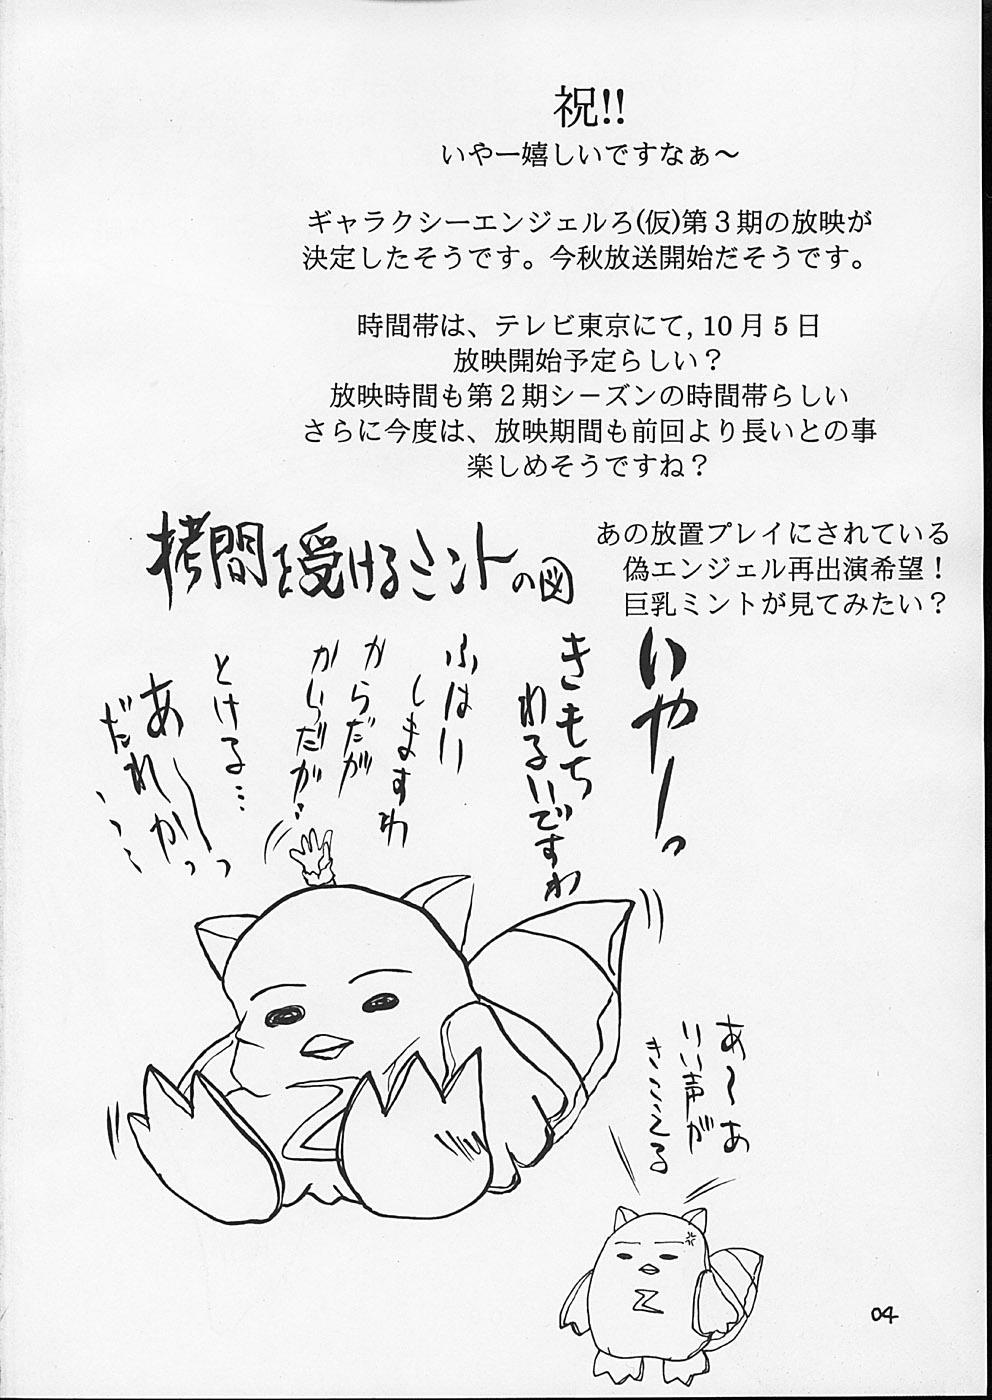 祝!!
いやー嬉しいですなぁ～
ギャラクシーエンジェルろ(仮)第３期の放映が
決定したそうです。今秋放送開始だそうです。
時間帯は、テレビ東京にて, 10月５日
放映開始予定らしい？
放映時間も第２期シーズンの時間帯らしい
さらに今度は、放映期間も前回より長いとの事
楽しめそうですね？
あの放置プレイにされている
偽エンジェル再出演希望！
巨乳ミントが見てみたい？
拷問を受けるミントの図
いやーっ
きもち
わるいですわ
ふはい
しますわ
からだが
からだが…
とける…
あ～～っ
だれかっ
あ～あ
いい声が
きこえる
Z
Z
04